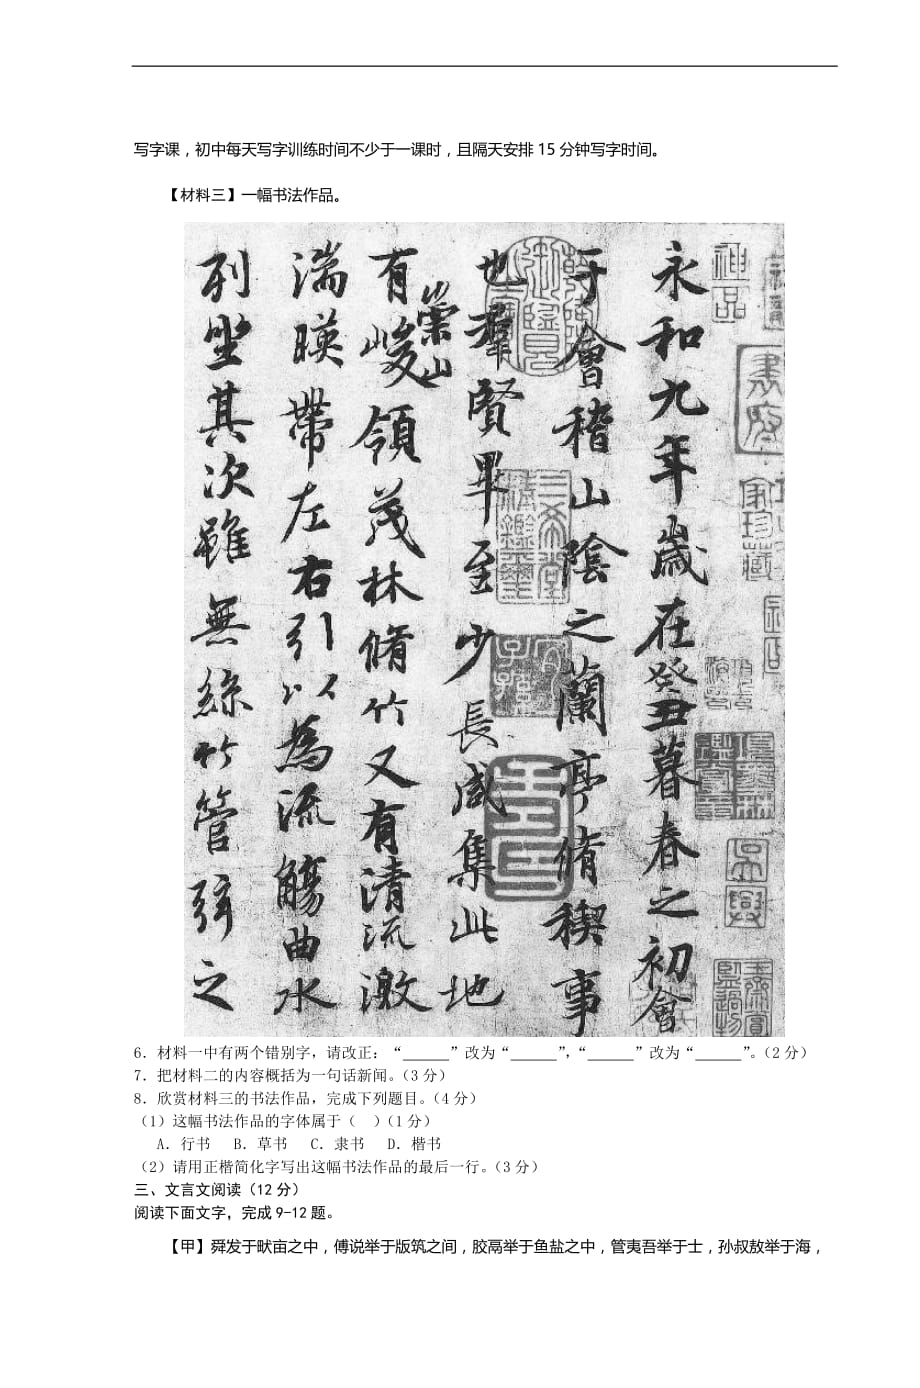 写字课，初中每天写字训练时间不少于一课时，且隔天安排 15 分钟写字时间。
【材料三】一幅书法作品。
永和九年歲在癸丑暮春之初會
于會稽山陰之蘭亭脩稧事
也羣賢畢至少長咸集此地
有崇山峻領茂林脩竹又有清流激
湍暎帶左右引以為流觴曲水
列坐其次雖無絲竹管弦之
6．材料一中有两个错别字，请改正：“______”改为“______”，“______”改为“______”。（2 分）
7．把材料二的内容概括为一句话新闻。（3 分）
8．欣赏材料三的书法作品，完成下列题目。（4 分）
（1）这幅书法作品的字体属于（ ）（1 分）
A．行书 B．草书 C．隶书 D．楷书
（2）请用正楷简化字写出这幅书法作品的最后一行。（3 分）
三、文言文阅读（12 分）
阅读下面文字，完成 9-12 题。
【甲】舜发于畎亩之中，傅说举于版筑之间，胶鬲举于鱼盐之中，管夷吾举于士，孙叔敖举于海，